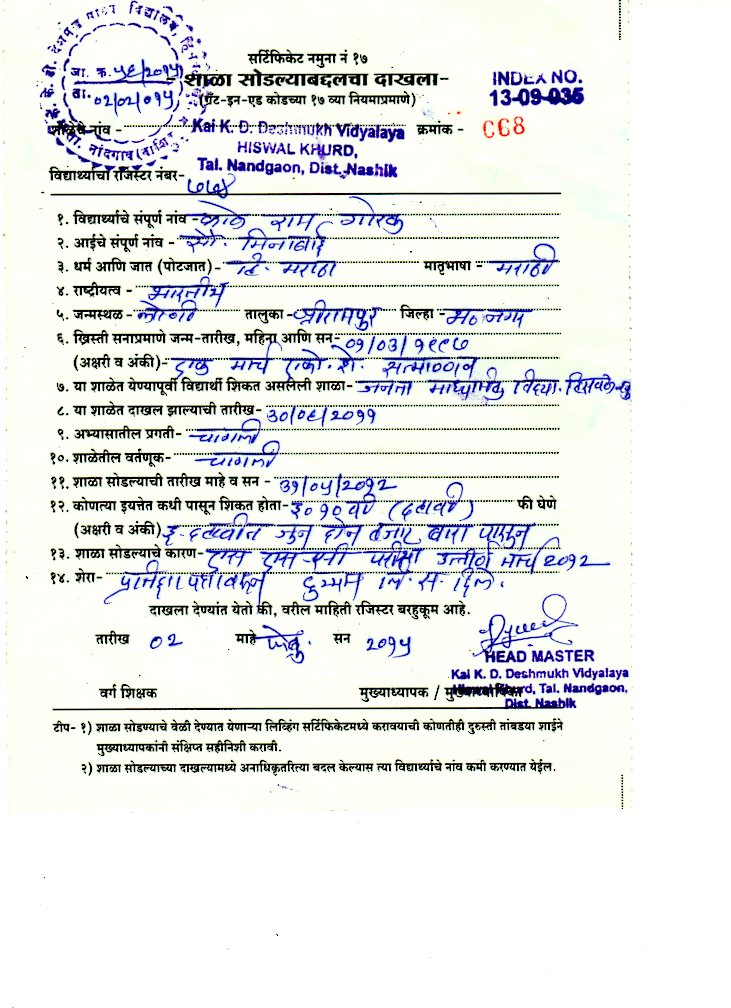 के. डी. देशमुख माध्य. विद्यालय, हिसवळ
जा. क्र. ५६/२०१५
ता. ०२/०२/०१५
ता. नांदगाव (नाशिक)
सर्टिफिकेट नमुना नं १७
शाळा सोडल्याबद्दलचा दाखला-
(ग्रँट-इन-एड कोडच्या १७ व्या नियमाप्रमाणे)
INDEX NO.
13-09-035
शाळेचे नांव - Kai K. D. Deshmukh Vidyalaya क्रमांक - ८८8
HISWAL KHURD,
Tal. Nandgaon, Dist. Nashik
विद्यार्थ्याचा रजिस्टर नंबर-
१. विद्यार्थ्याचे संपूर्ण नांव - काळे राम गोरख
२. आईचे संपूर्ण नांव - सौ. मिनाबाई
३. धर्म आणि जात (पोटजात)- हिं. मराठा मातृभाषा - मराठी
४. राष्ट्रीयत्व - भारतीय
५. जन्मस्थळ - तालुका- श्रीरामपुर जिल्हा - अ.नगर
६. ख्रिस्ती सनाप्रमाणे जन्म-तारीख, महिना आणि सन- ०१/०३/१९९७
(अक्षरी व अंकी)- एक मार्च एको. शे. सत्याण्णव
७. या शाळेत येण्यापूर्वी विद्यार्थी शिकत असलेली शाळा- जनता माध्यमिक विद्या. हिसवळ खु
८. या शाळेत दाखल झाल्याची तारीख- ३०/०६/२०११
९. अभ्यासातील प्रगती- चांगली
१०. शाळेतील वर्तणूक- चांगली
११. शाळा सोडल्याची तारीख माहे व सन - ३१/०५/२०१२
१२. कोणत्या इयत्तेत कधी पासून शिकत होता- इ. १० वी (दहावी) फी घेणे
(अक्षरी व अंकी) इ. दहावीत जुन दोन हजार अकरा पासून
१३. शाळा सोडल्याचे कारण- एस एस सी परीक्षा उत्तीर्ण मार्च २०१२
१४. शेरा- प्रतिज्ञा पत्रावरून दुय्यम लि. स. दिले.
दाखला देण्यांत येतो की, वरील माहिती रजिस्टर बरहुकूम आहे.
तारीख ०२ माहे फेब्रु. सन २०१५
HEAD MASTER
Kai K. D. Deshmukh Vidyalaya
Hiswal Khurd, Tal. Nandgaon,
Dist. Nashik
वर्ग शिक्षक मुख्याध्यापक / मुख्याध्यापिका
टीप- १) शाळा सोडण्याचे वेळी देण्यात येणाऱ्या लिव्हिंग सर्टिफिकेटमध्ये करावयाची कोणतीही दुरुस्ती तांबडया शाईने
मुख्याध्यापकांनी संक्षिप्त सहीनिशी करावी.
२) शाळा सोडल्याच्या दाखल्यामध्ये अनाधिकृतरित्या बदल केल्यास त्या विद्यार्थ्याचे नांव कमी करण्यात येईल.